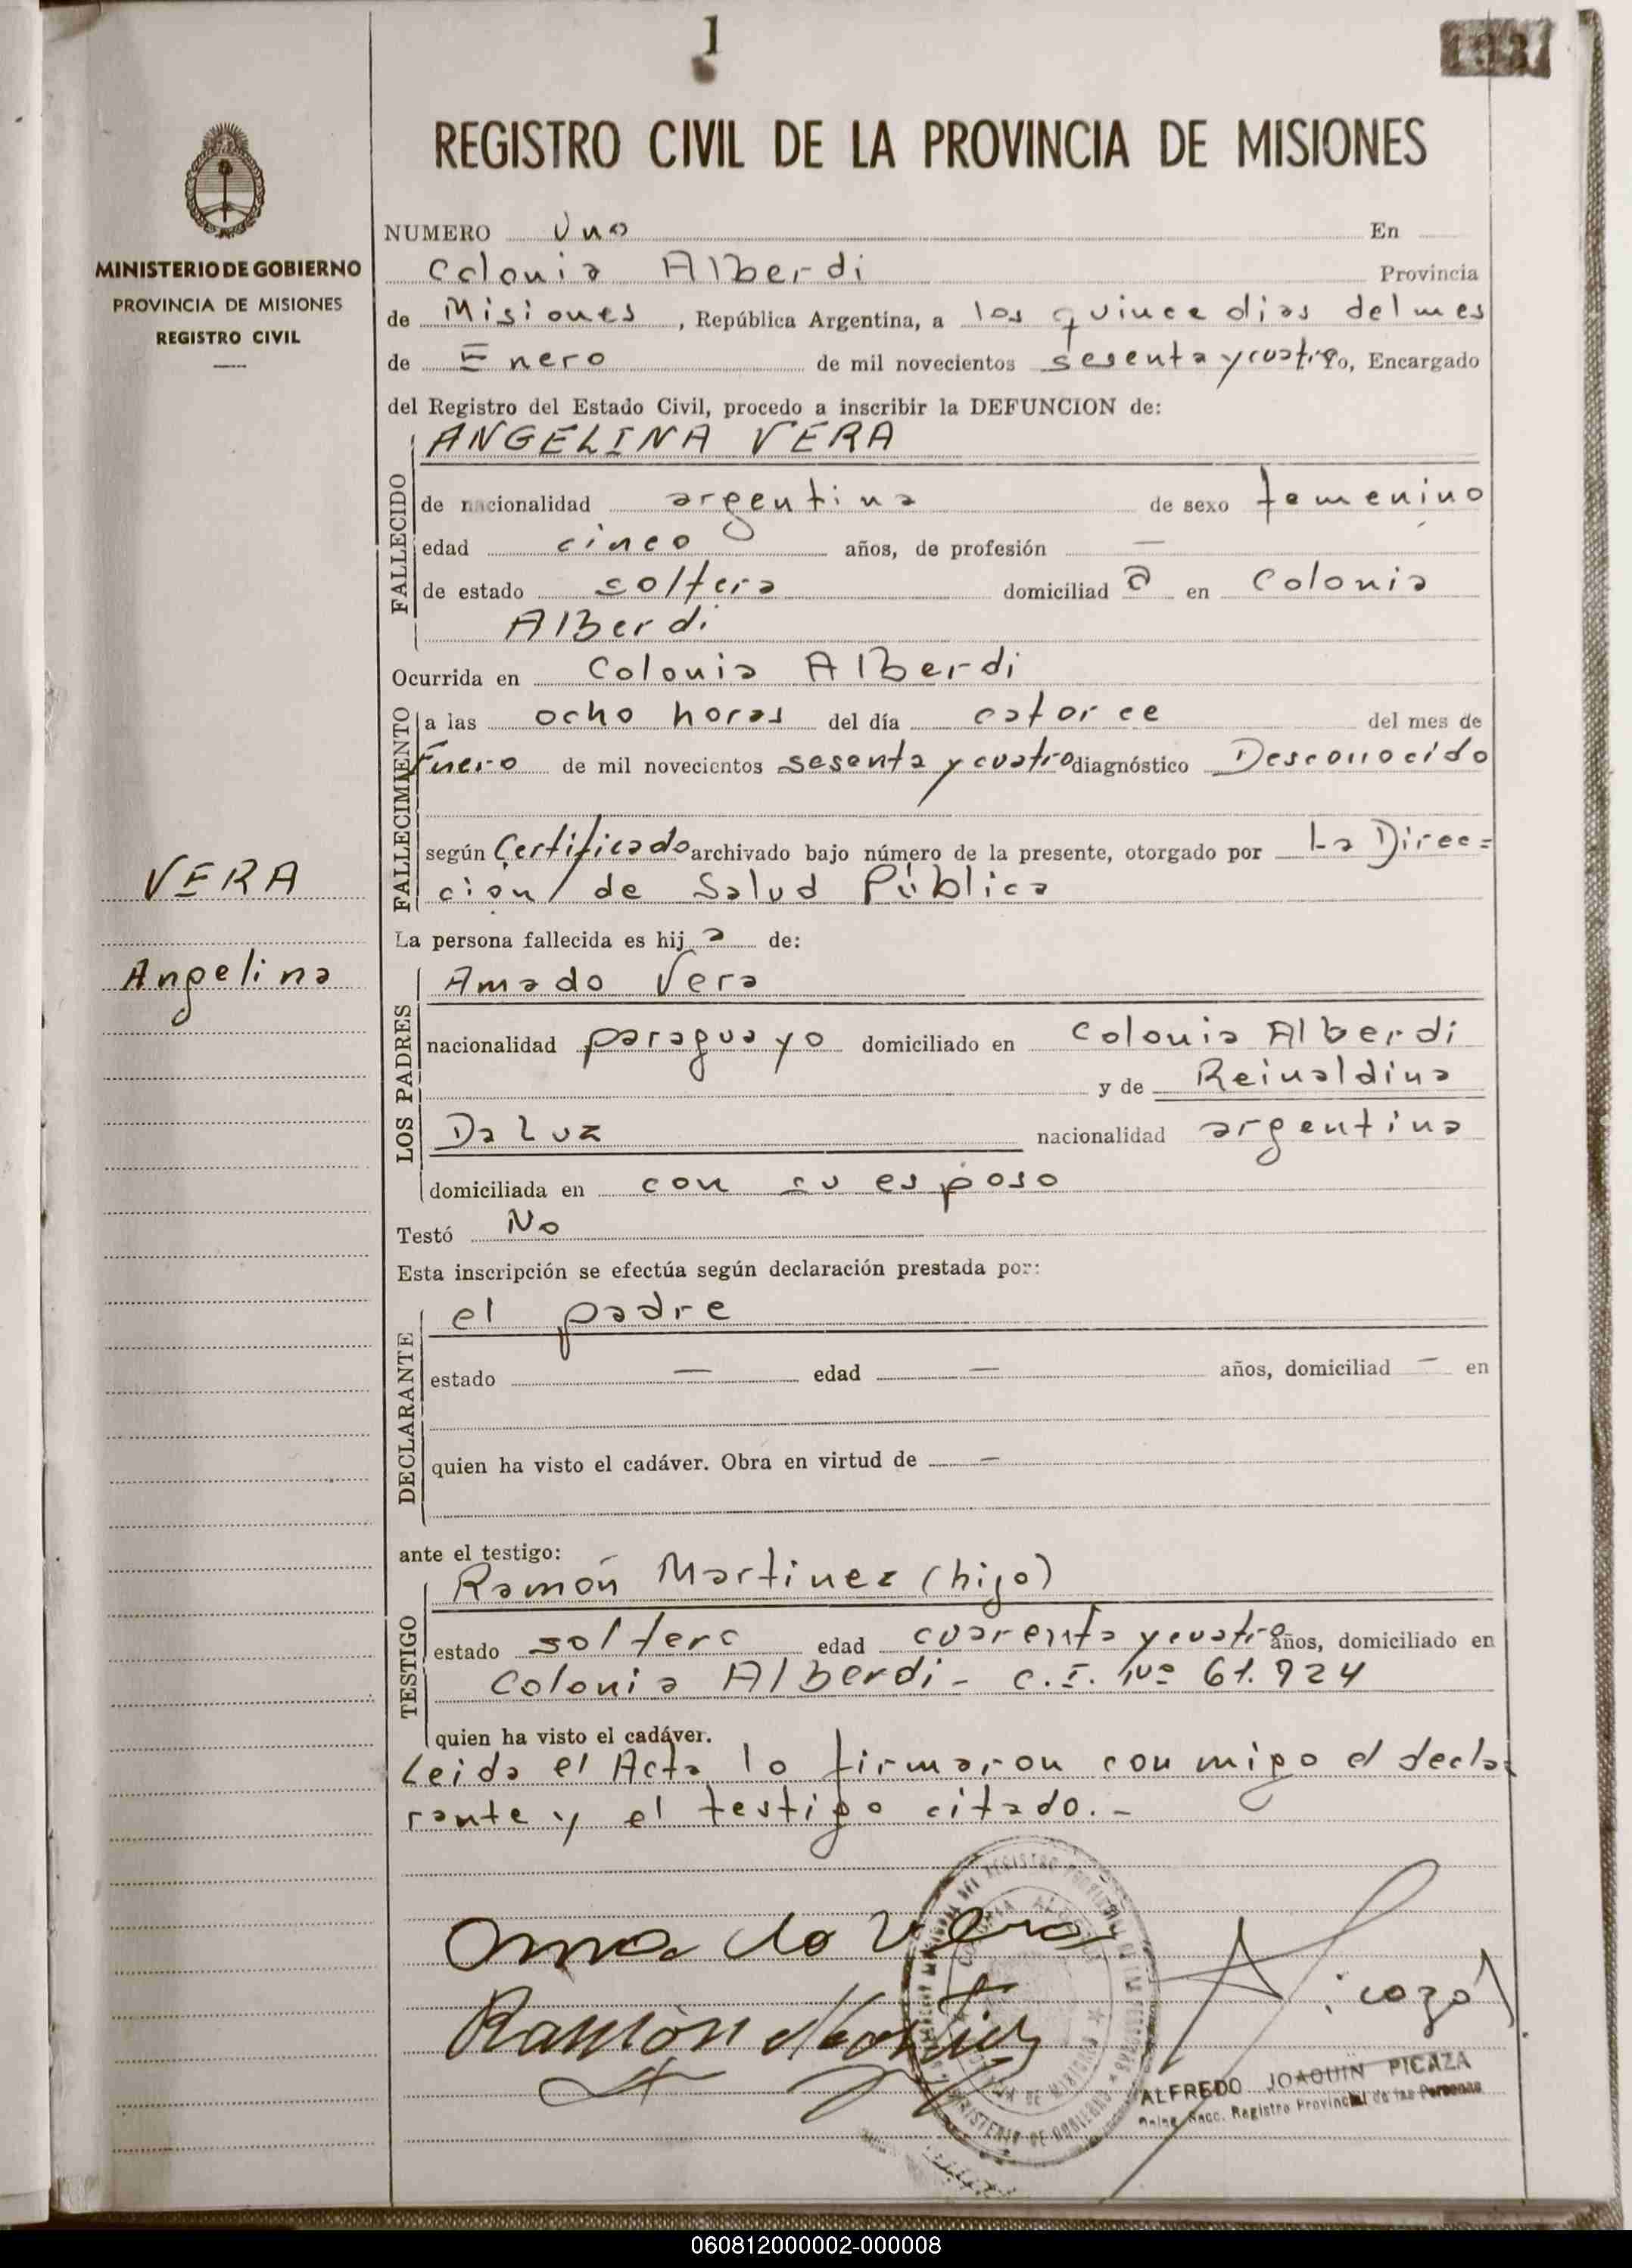 1
REGISTRO CIVIL DE LA PROVINCIA DE MISIONES
MINISTERIO DE GOBIERNO
PROVINCIA DE MISIONES
REGISTRO CIVIL
VERA
Angelina
NUMERO Uno En
Colonia Alberdi Provincia
de Misiones, República Argentina, a los quince dias del mes
de Enero de mil novecientos sesenta y cuatro Yo, Encargado
del Registro del Estado Civil, procedo a inscribir la DEFUNCION de:
FALLECIDO
ANGELINA VERA
de nacionalidad argentina de sexo femenino
edad cinco años, de profesión —
de estado soltera domiciliad a en Colonia
Alberdi
Ocurrida en Colonia Alberdi
FALLECIMIENTO
a las ocho horas del día catorce del mes de
Enero de mil novecientos sesenta y cuatro diagnóstico Desconocido
según Certificado archivado bajo número de la presente, otorgado por La Direc=
cion de Salud Pública
La persona fallecida es hij a de:
LOS PADRES
Amado Vera
nacionalidad paraguayo domiciliado en Colonia Alberdi
y de Reinaldina
Da Luz nacionalidad argentina
domiciliada en con su esposo
Testó No
Esta inscripción se efectúa según declaración prestada por:
DECLARANTE
el padre
estado — edad — años, domiciliad — en
quien ha visto el cadáver. Obra en virtud de —
ante el testigo:
TESTIGO
Ramón Martinez (hijo)
estado soltero edad cuarenta y cuatro años, domiciliado en
Colonia Alberdi - C.I. Nº 61.924
quien ha visto el cadáver.
Leida el Acta lo firmaron con migo el decla-
rante y el testigo citado.-
Amado Vera
Ramón Martinez
ALFREDO JOAQUIN PICAZA
Secc. Registro Provincial de las Personas
060812000002-000008